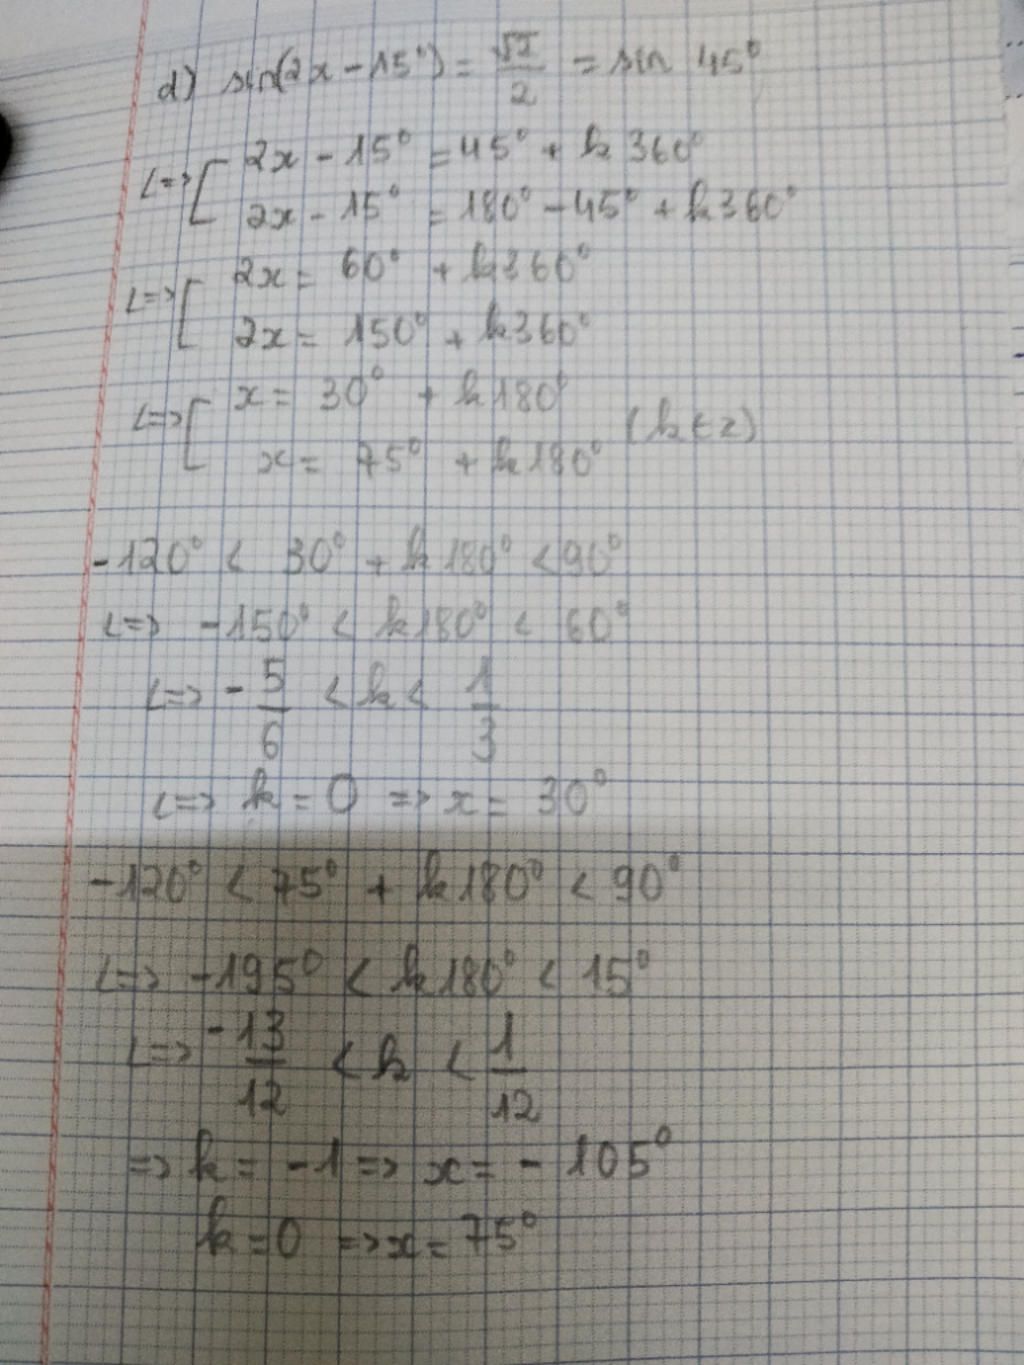 d) sin(2x - 15°) = √2/2 = sin 45°
<=> [ 2x - 15° = 45° + k360°
2x - 15° = 180° - 45° + k360°
<=> [ 2x = 60° + k360°
2x = 150° + k360°
<=> [ x = 30° + k180°
x = 75° + k180° (k ∈ Z)
-120° < 30° + k180° < 90°
<=> -150° < k180° < 60°
<=> -5/6 < k < 1/3
<=> k = 0 => x = 30°
-120° < 75° + k180° < 90°
<=> -195° < k180° < 15°
<=> -13/12 < k < 1/12
=> k = -1 => x = -105°
k = 0 => x = 75°